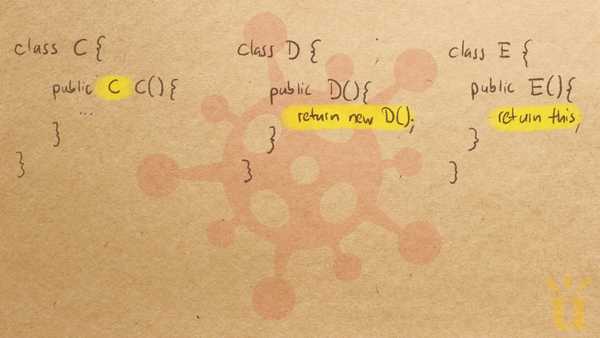 class C {
public C C() {
...
}
}
class D {
public D() {
return new D();
}
}
class E {
public E() {
return this;
}
}